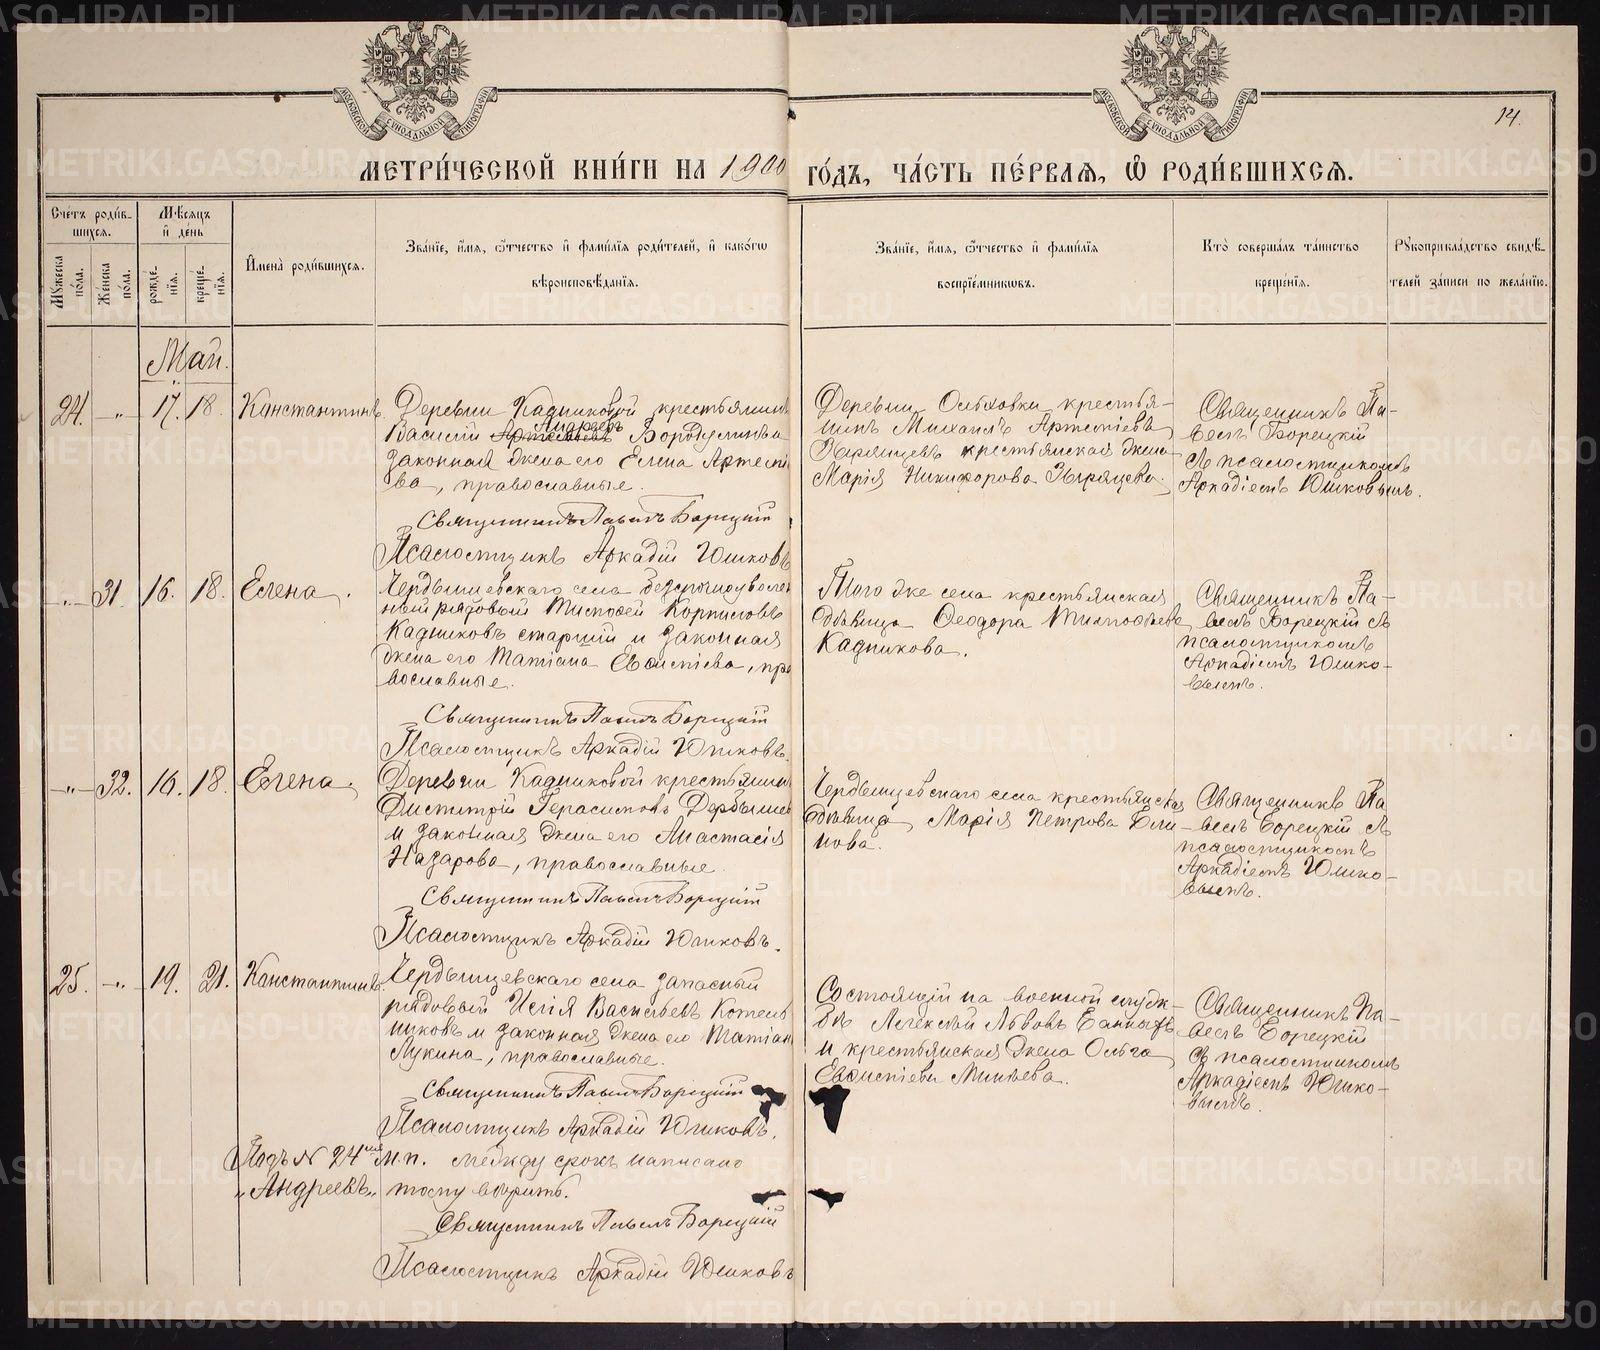 14.
МЕТРИ́ЧЕСКОЙ КНИ́ГИ НА 1900 ГО́ДЪ, ЧА́СТЬ ПЕ́РВАѦ, Ѡ РОДИ́ВШИХСѦ.
Сче́тъ роди́в-
шихсѧ.
Мѣ́сѧцъ
и де́нь
Мꙋ́жеска
по́ла.
Же́нска
по́ла.
рожде́-
нїѧ.
креще́-
нїѧ.
Имена̀ роди́вшихсѧ.
Зва́нїе, и́мѧ, ѻ́тчество и фами́лїѧ роди́телей, и како́гѡ
вѣроисповѣ́данїѧ.
Зва́нїе, и́мѧ, ѻ́тчество и фами́лїѧ
воспрїе́мникѡвъ.
Кто̀ соверша́лъ та́инство
креще́нїѧ.
Рꙋкоприкла́дство свидѣ́-
телей за́писи по жела́нїю.
Май.
24. — „ — 17. 18. Канстантинъ
Деревни Кадниковой крестьянинъ
Андреевъ
Василий Артемьевъ Бородулинъ и
законная жена его Елена Артемі
ва, православные.
Священникъ Павелъ Борецкій
Псаломщикъ Аркадій Юшковъ
Деревни Ольховки крестья-
нинъ Михаилъ Артеміевъ
Зырянцевъ крестьянская жена
Марія Никифорова Зырянцева.
Священникъ Па-
велъ Борецкій
съ псаломщикомъ
Аркадіемъ Юшковымъ.
— „ — 31. 16. 18. Елена.
Чердынцевскаго села безсрочноуволен
ный рядовой Тимофей Корниловъ
Кадниковъ старшій и законная
жена его Татіана Евфиміева, пра
вославные.
Священникъ Павелъ Борецкій
Псаломщикъ Аркадій Юшковъ.
Того же села крестьянская
дѣвица Феодора Тимофѣева
Кадникова.
Священникъ Па-
велъ Борецкій съ
псаломщикомъ
Аркадіемъ Юшко-
вымъ.
— „ — 32. 16. 18. Елена.
Деревни Кадниковой крестьянин
Димитрій Герасимовъ Дербышев
и законная жена его Анастасія
Назарова, православные.
Священникъ Павелъ Борецкій
Псаломщикъ Аркадій Юшковъ.
Чердынцевскаго села крестьянская
дѣвица Марія Петрова Бли-
нова.
Священникъ Па
велъ Борецкій съ
псаломщикомъ
Аркадіемъ Юшко-
вымъ.
25. — „ — 19. 21. Канстантинъ
Чердынцевскаго села запасный
рядовый Илія Васильевъ Котель
никовъ и законная жена его Татіан
Лукина, православные.
Священникъ Павелъ Борецкій
Псаломщикъ Аркадій Юшковъ.
Состоящій на военной служ-
бѣ Алексѣй Львовъ
и крестьянская жена Ольга
Евфиміева Минѣева.
Священникъ Па-
велъ Борецкій
съ псаломщикомъ
Аркадіемъ Юшко-
вымъ.
Подъ № 24мъ м.п. между срокъ написано
„Андреевъ„ тому вѣрить.
Священникъ Павелъ Борецкій
Псаломщикъ Аркадій Юшковъ
METRIKI.GASO-URAL.RU